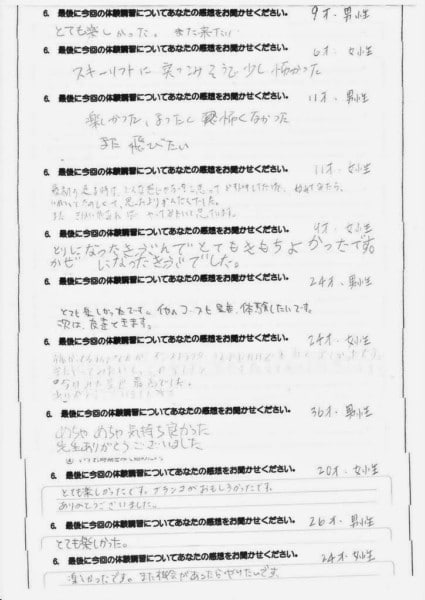 6. 最後に今回の体験講習についてあなたの感想をお聞かせください。 9才・男性
とても楽しかった。また来たい
6. 最後に今回の体験講習についてあなたの感想をお聞かせください。 6才・女性
スキーリフトに突っこみそうで少し怖かった
6. 最後に今回の体験講習についてあなたの感想をお聞かせください。 11才・男性
楽しかった、まったく怖くなかった
また飛びたい
6. 最後に今回の体験講習についてあなたの感想をお聞かせください。 11才・女性
6. 最後に今回の体験講習についてあなたの感想をお聞かせください。 9才・女性
とりになったきぶんでとてもきもちよかったです。
かぜになったきぶんでした。
6. 最後に今回の体験講習についてあなたの感想をお聞かせください。 24才・男性
とても楽しかったです。他のコースも是非、体験したいです。
次は、友達ときます。
6. 最後に今回の体験講習についてあなたの感想をお聞かせください。 24才・女性
6. 最後に今回の体験講習についてあなたの感想をお聞かせください。 36才・男性
めちゃめちゃ気持ち良かった
先生ありがとうございました
6. 最後に今回の体験講習についてあなたの感想をお聞かせください。 20才・女性
とても楽しかったです。ブランコがおもしろかったです。
ありがとうございました。
6. 最後に今回の体験講習についてあなたの感想をお聞かせください。 26才・男性
とても楽しかった。
6. 最後に今回の体験講習についてあなたの感想をお聞かせください。 24才・女性
楽しかったです。また機会があったらやりたいです。